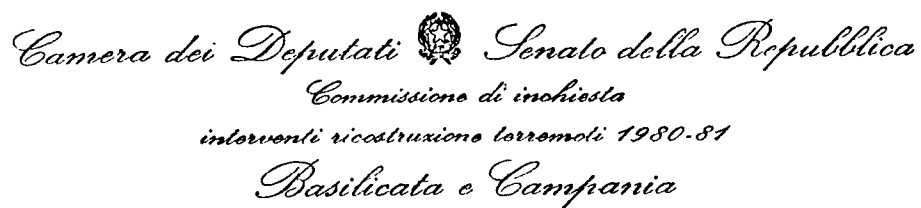 Camera dei Deputati Senato della Repubblica
Commissione di inchiesta
interventi ricostruzione terremoti 1980-81
Basilicata e Campania